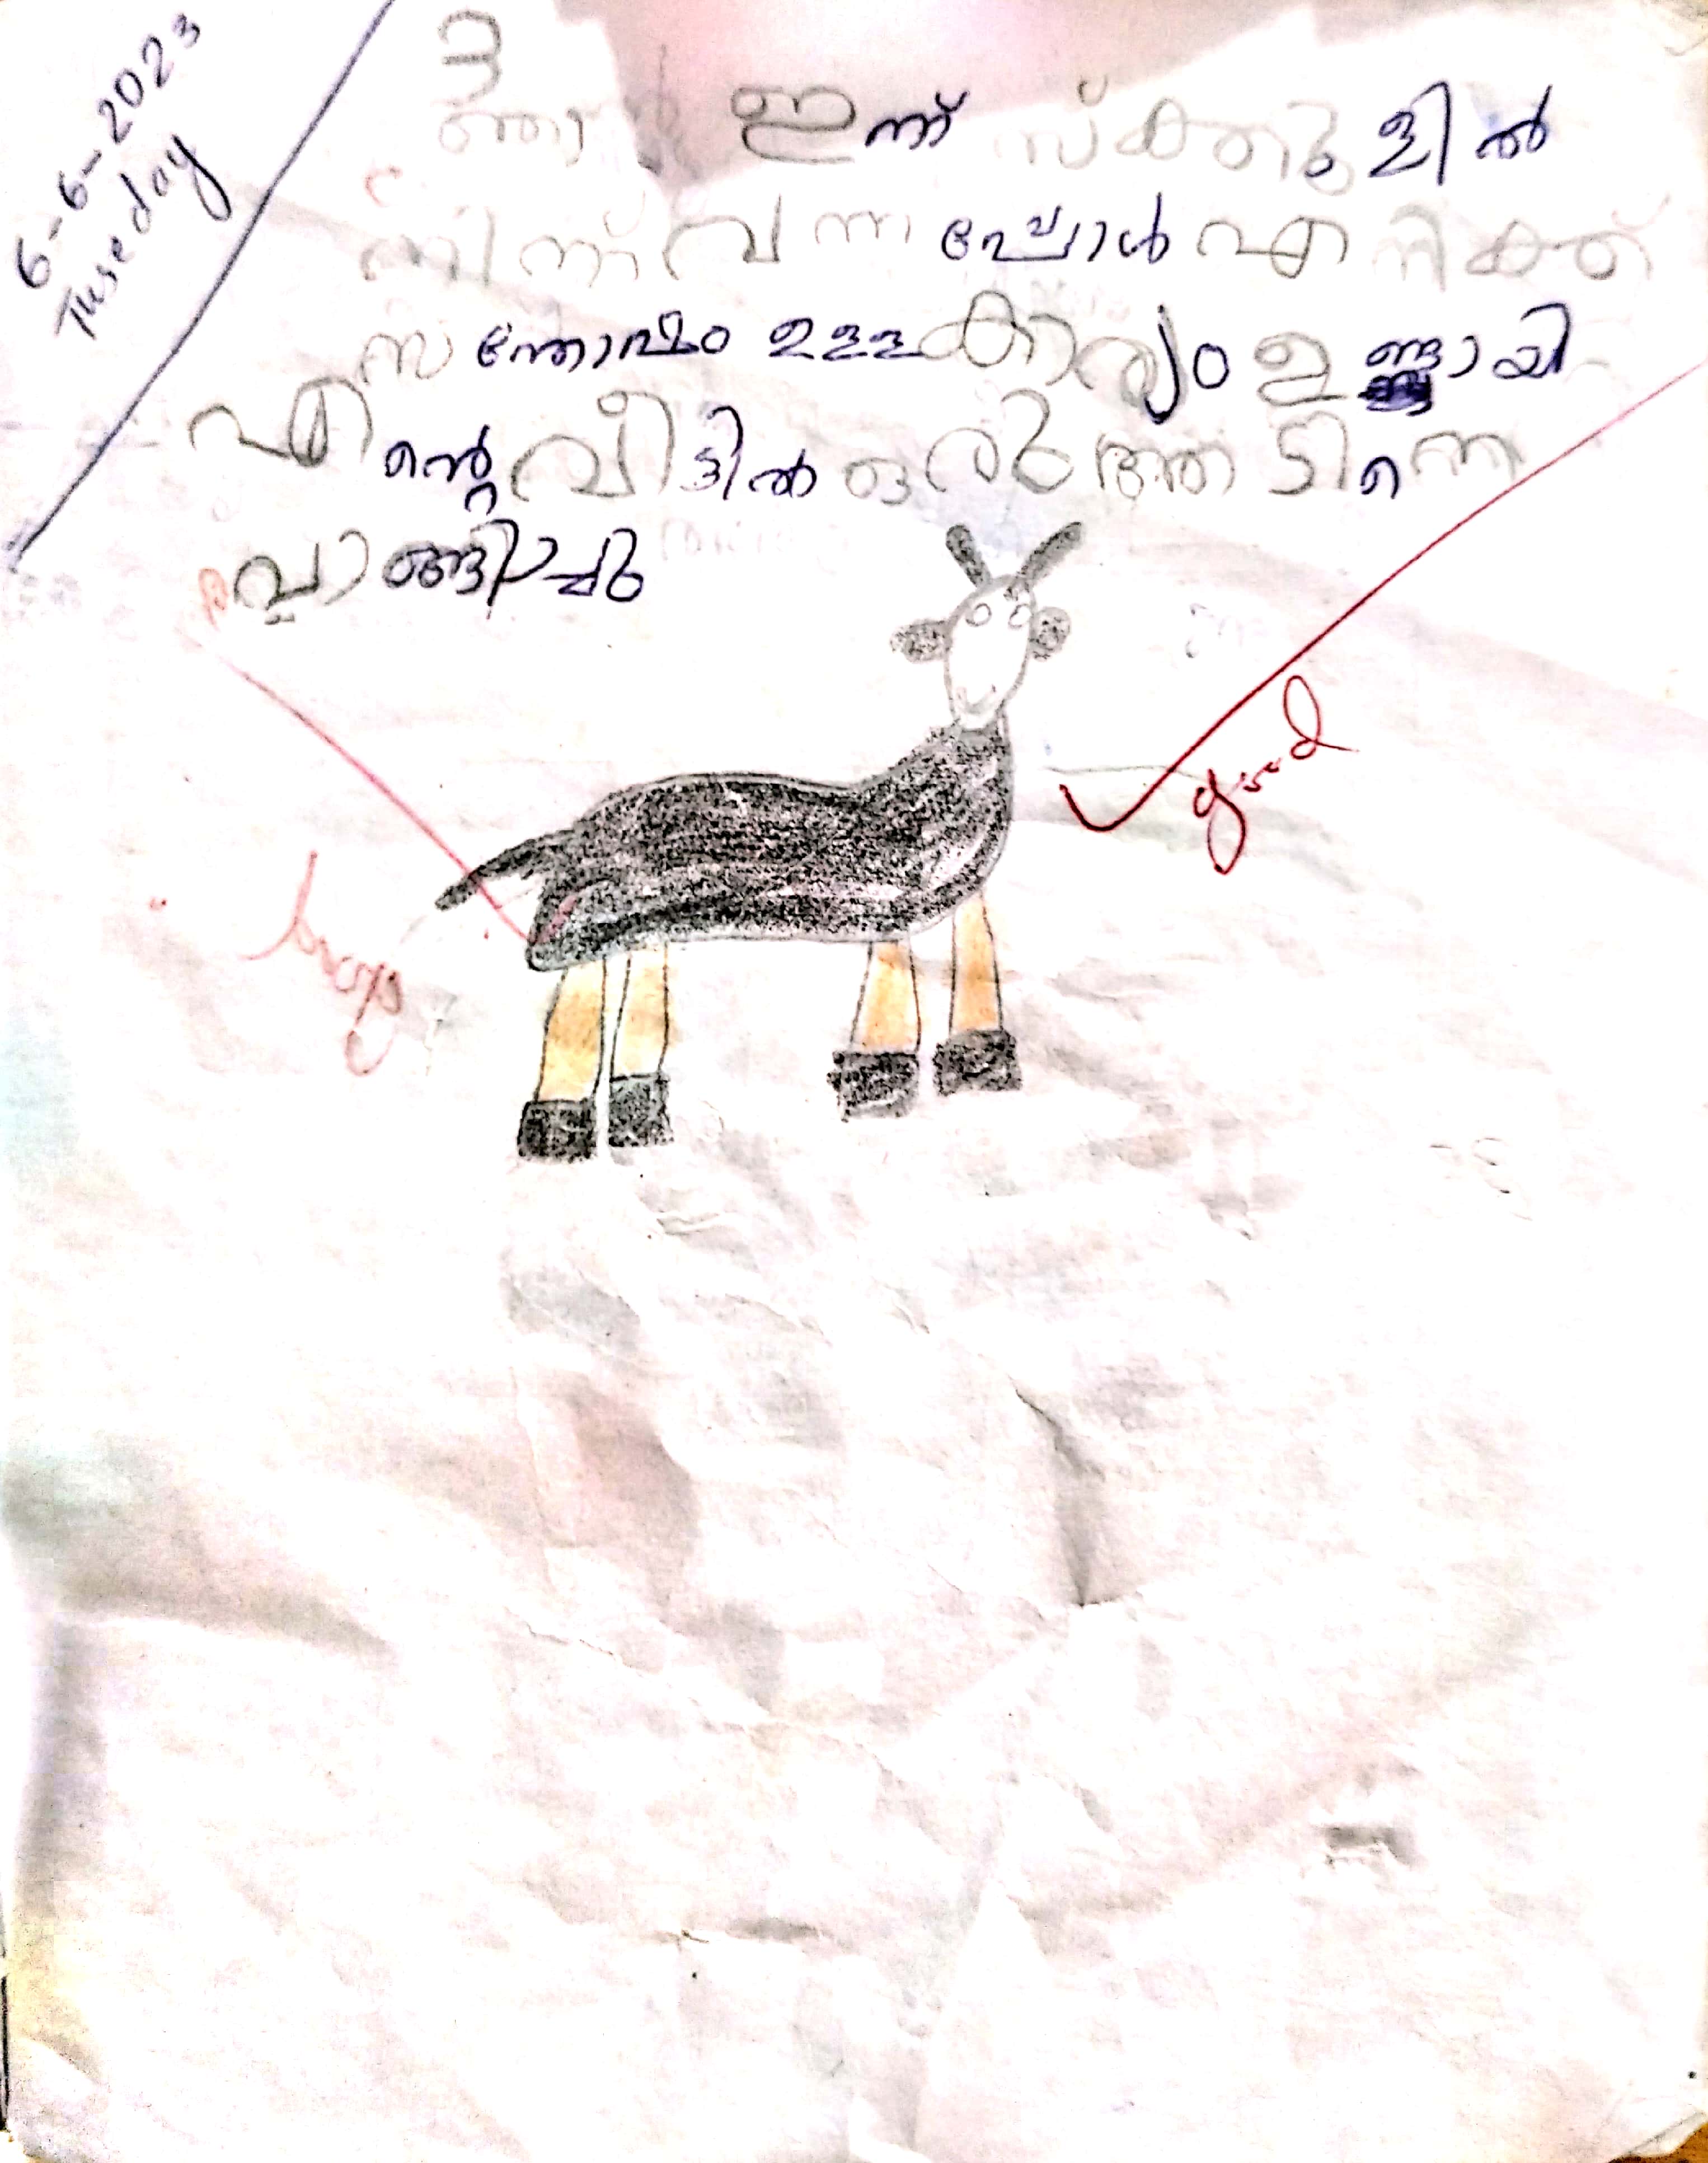 6-6-2023
Tuseday
ഞാ ഇന്ന് സ്കൂളിൽ
നിന്ന് വന്നപ്പോൾ എനിക്ക്
സന്തോഷം ഉള്ള കാര്യം ഉണ്ടായി
എന്റെ വീട്ടിൽ ഒരു ആടിനെ
വാങ്ങിച്ചു
good